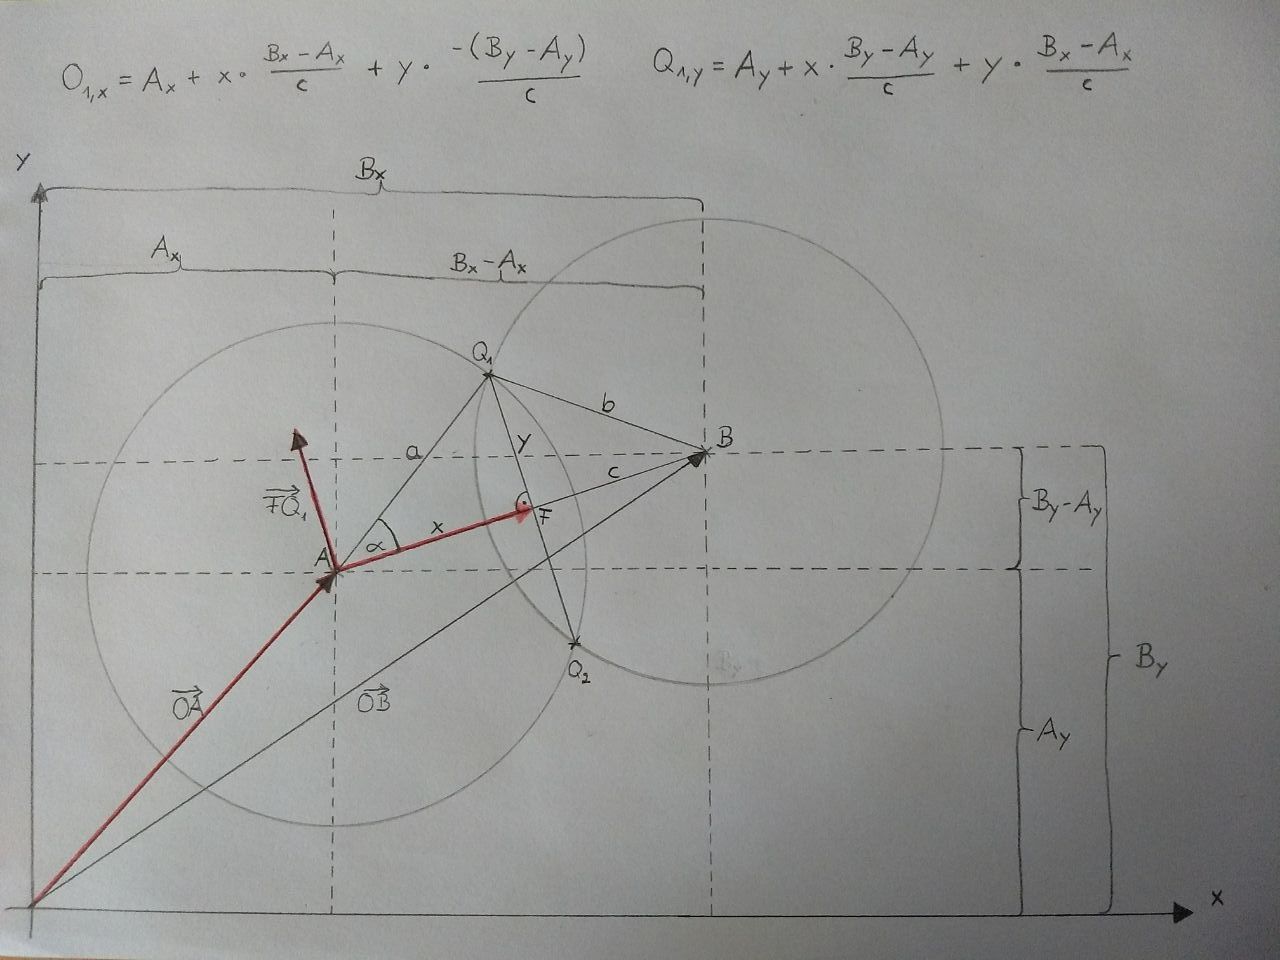 O₁,ₓ = Aₓ + x · (Bₓ - Aₓ)/c + y · -(By - Ay)/c
Q₁,y = Ay + x · (By - Ay)/c + y · (Bₓ - Aₓ)/c
y
Bₓ
Aₓ
Bₓ - Aₓ
Q₁
b
a
y
B
c
FQ₁
By - Ay
x
F
A
α
By
By
Q₂
OA
OB
Ay
x